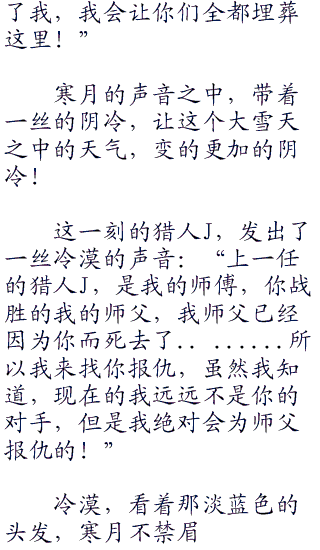 了我，我会让你们全都埋葬
这里！”
寒月的声音之中，带着
一丝的阴冷，让这个大雪天
之中的天气，变的更加的阴
冷！
这一刻的猎人J，发出了
一丝冷漠的声音：“上一任
的猎人J，是我的师傅，你战
胜的我的师父，我师父已经
因为你而死去了.. ......所
以我来找你报仇，虽然我知
道，现在的我远远不是你的
对手，但是我绝对会为师父
报仇的！”
冷漠，看着那淡蓝色的
头发，寒月不禁眉